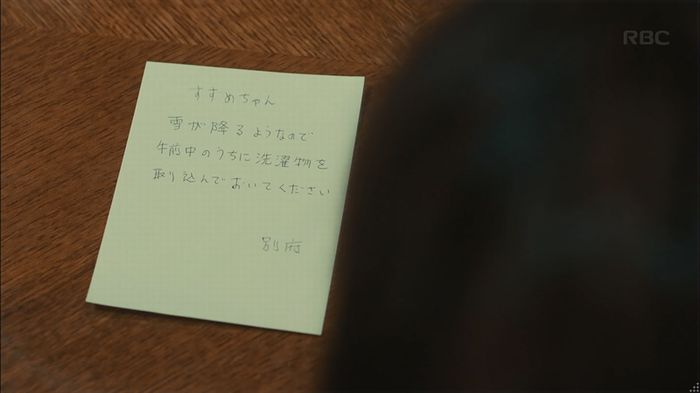 RBC
すずめちゃん
雪が降るようなので
午前中のうちに洗濯物を
取り込んでおいてください
別府